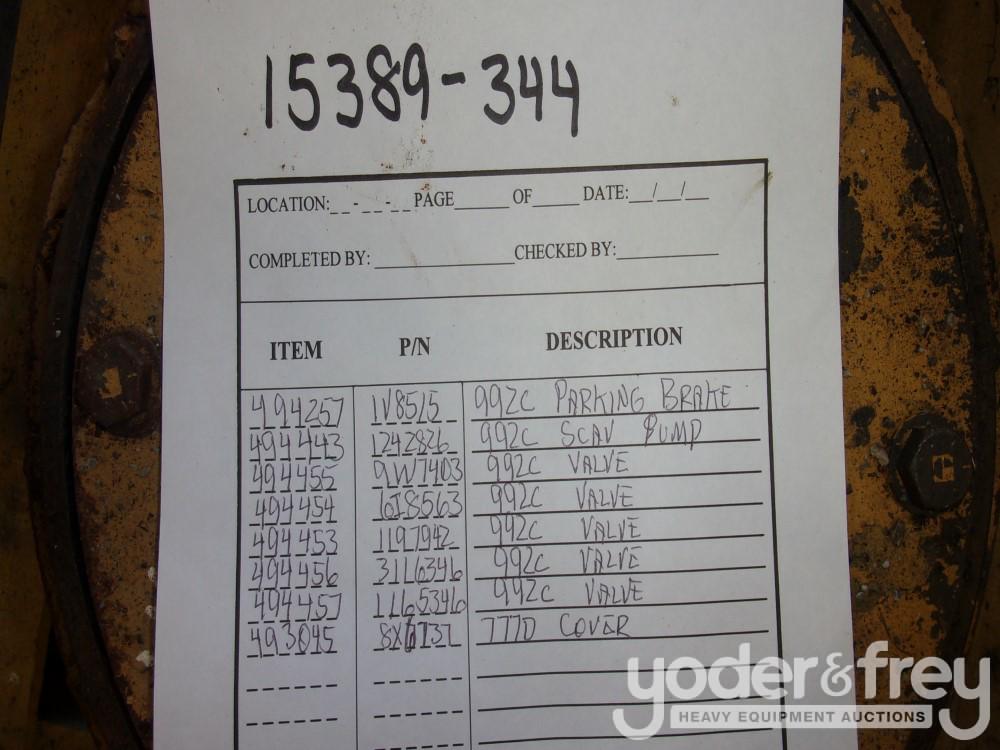 15389-344
LOCATION:_ _-_ _-_ _ PAGE______ OF_____ DATE:__/__/__
COMPLETED BY: _______________ CHECKED BY:___________
ITEM P/N DESCRIPTION
494257 1V8515 992C PARKING BRAKE
494443 1242826 992C SCAV PUMP
494455 9W7403 992C VALVE
494454 6J8563 992C VALVE
494453 1197942 992C VALVE
494456 992C VALVE
494457 1165346 992C VALVE
493045 777D COVER
yoder&frey
HEAVY EQUIPMENT AUCTIONS